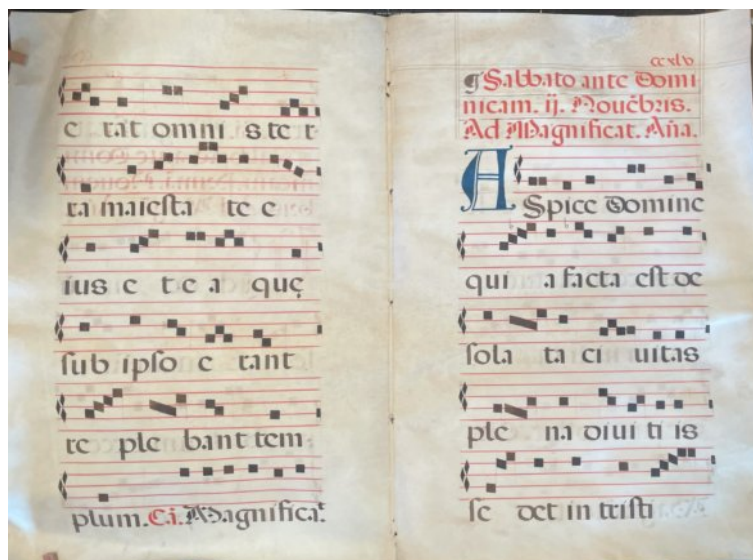 e rat omni s te r
ra maiesta te e
ius e t e a quę
sub ipso e rant
re ple bant tem
plum. E.i. Magnificat.
ccxlv
¶ Sabbato ante Domi
nicam. ij. Nouēbris.
Ad Magnificat. Aña.
A Spice Domine
qui a facta est de
sola ta ci uitas
ple na diui ti is
se det in tristi